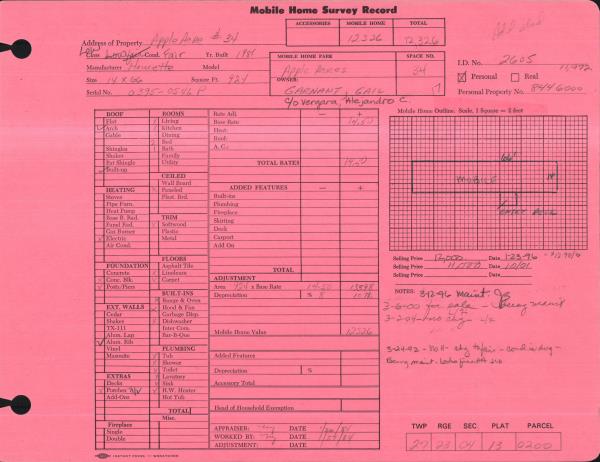 Mobile Home Survey Record
ACCESSORIES MOBILE HOME TOTAL
12,326 12,326
Address of Property Apple Acres # 34
Low
Class Cond. Fair Yr. Built 1981
Manufacturer
Size 14 X 66 Square Ft. 924
Serial No.
MOBILE HOME PARK SPACE NO.
Apple Acres 34
OWNER:
GARNANT, GAIL
c/o Vergara, Alejandro C.
I.D. No. 2605
11,992
Personal Real
Personal Property No. 8446000
ROOF
Flat
Arch
Gable
Shingles
Shakes
Fat Shingle
Built-up
HEATING
Stoves
Pipe Furn.
Heat Pump
Base B. Rad.
Panel Rad.
Gas Burner
Electric
Air Cond.
FOUNDATION
Concrete
Conc. Blk.
Posts/Piers
EXT. WALLS
Cedar
Shakes
TX-111
Alum. Lap
Alum. Rib
Vinyl
Masonite
EXTRAS
Decks
Porches N/V
Add-Ons
Fireplace
Single
Double
ROOMS
Living
Kitchen
Dining
Bed
Bath
Family
Utility
CEILED
Wall Board
Paneled
Plast. Brd.
TRIM
Softwood
Plastic
Metal
FLOORS
Asphalt Tile
Linoleum
Carpet
BUILT-INS
Range & Oven
Hood & Fan
Garbage Disp.
Dishwasher
Inter Com.
Bar-B-Que
PLUMBING
Tub
Shower
Toilet
Lavatory
Sink
H.W. Heater
Hot Tub
TOTAL
Misc.
Rate Adj. — +
Base Rate 14.50
Heat:
Roof:
A.C.
TOTAL RATES 14.50
ADDED FEATURES — +
Built-ins
Plumbing
Fireplace
Skirting
Deck
Carport
Add On
TOTAL
ADJUSTMENT
Area 924 x Base Rate 14.50 13398
Depreciation % 8
Mobile Home Value 12326
Added Features
Depreciation %
Accessory Total
Head of Household Exemption
APPRAISER: DATE
WORKED BY: DATE
ADJUSTMENT: DATE
Mobile Home Outline. Scale, 1 Square = 2 feet
66'
MOBILE
14'
Selling Price 12,000 Date 1-23-96
Selling Price Date 10/01
NOTES: 3-12-96 Maint.
3-6-00 for sale - Being maint
3-2-04 no chg
TWP RGE SEC PLAT PARCEL
27 23 04 13 0200